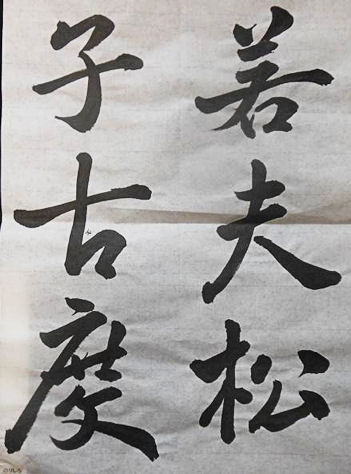 若夫松
子古度